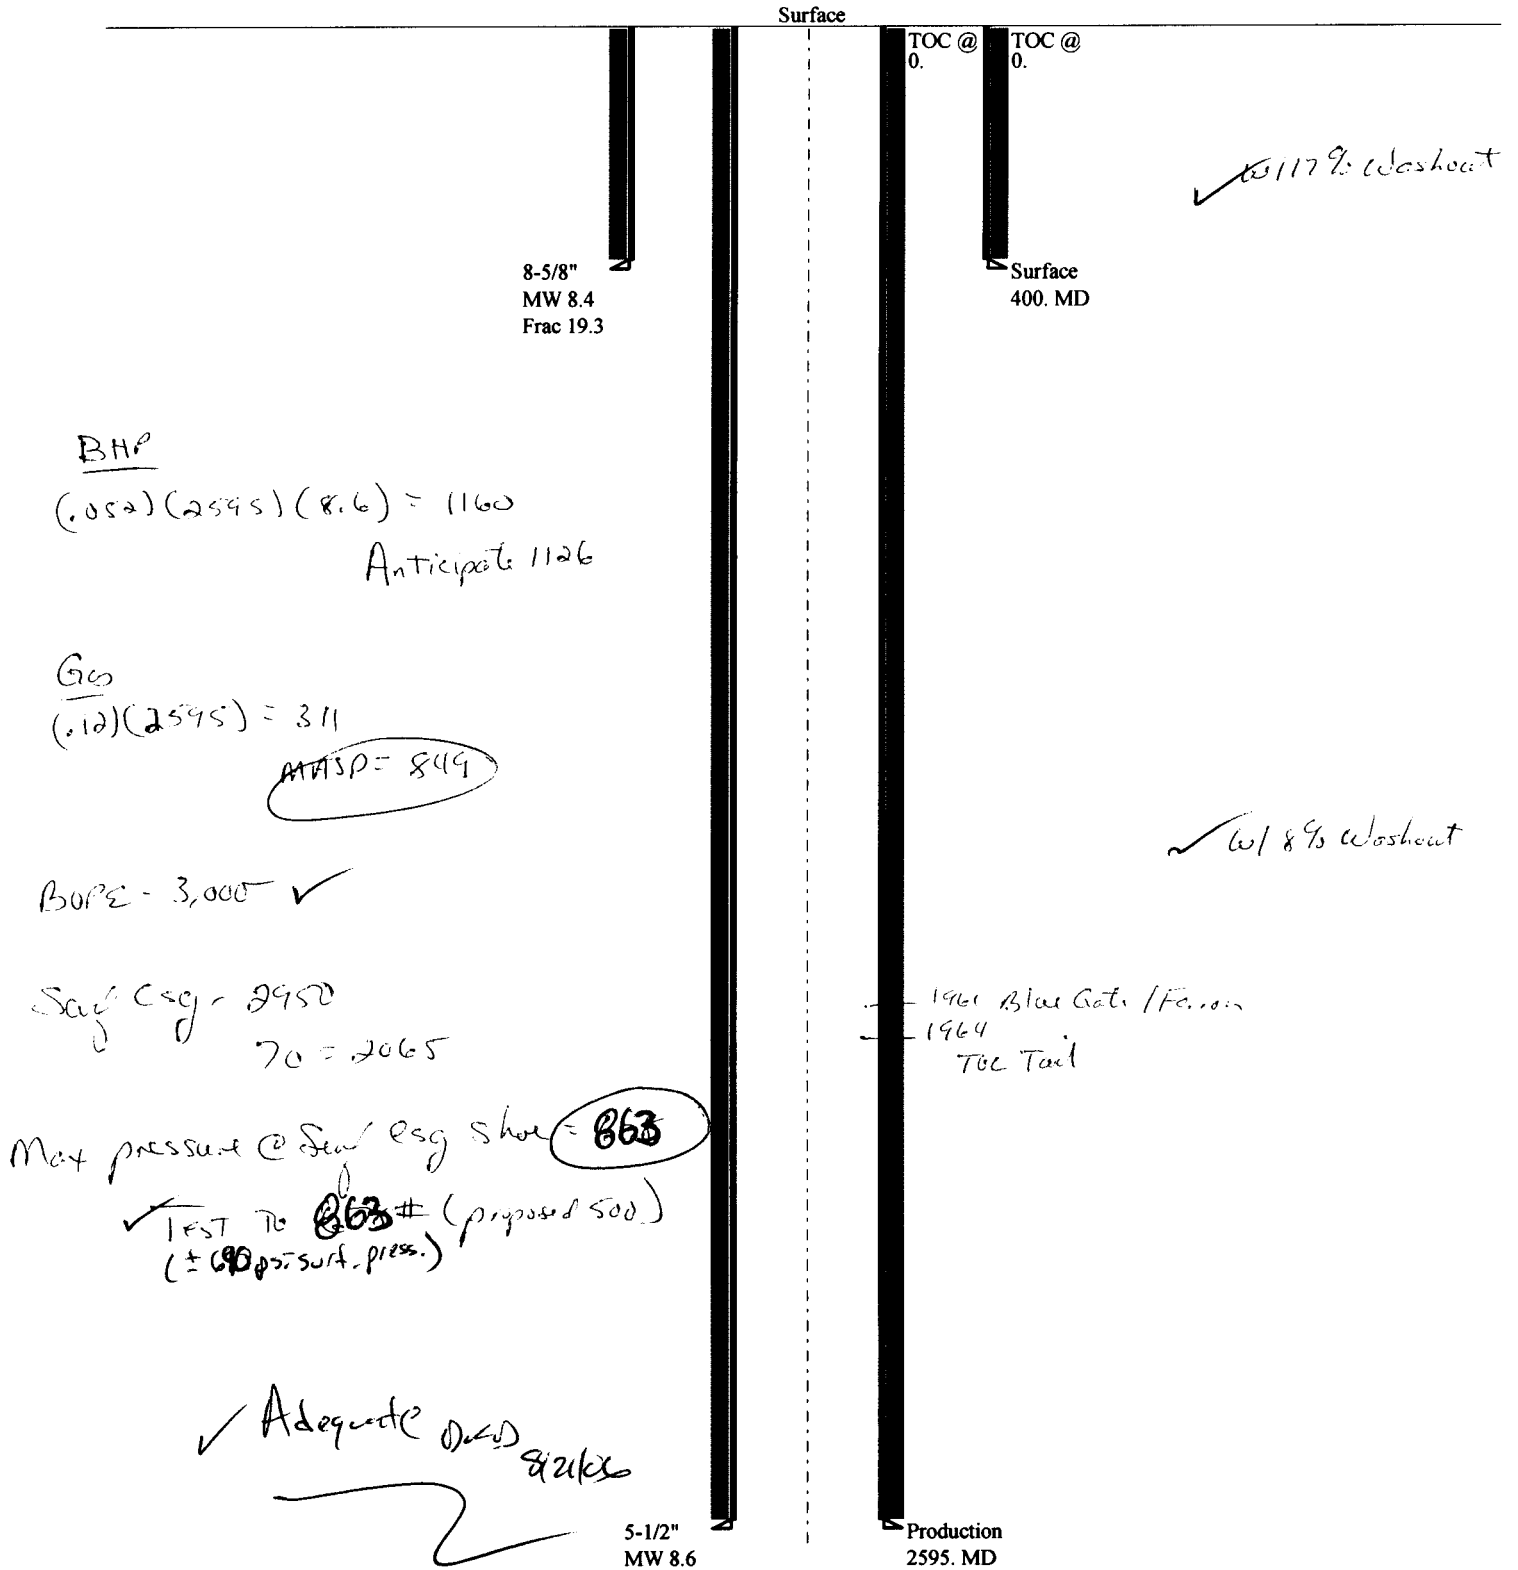 Surface
TOC @
0.
TOC @
0.
✓ w/ 17% Washout
8-5/8"
MW 8.4
Frac 19.3
Surface
400. MD
BHP
(.052)(2595)(8.6) = 1160
Anticipate 1126
Gas
(.12)(2595) = 311
MASP = 849
✓ w/ 8% Washout
BOPE - 3,000 ✓
Surf Csg - 2950
70 = 2065
1961 Blue Gate / Ferron
1964
TOC Tail
Max pressure @ Surf csg shoe = 863
✓ TEST TO 863 # (proposed 500)
(± 690 psi surf. press.)
✓ Adequate DKD
8/21/06
5-1/2"
MW 8.6
Production
2595. MD